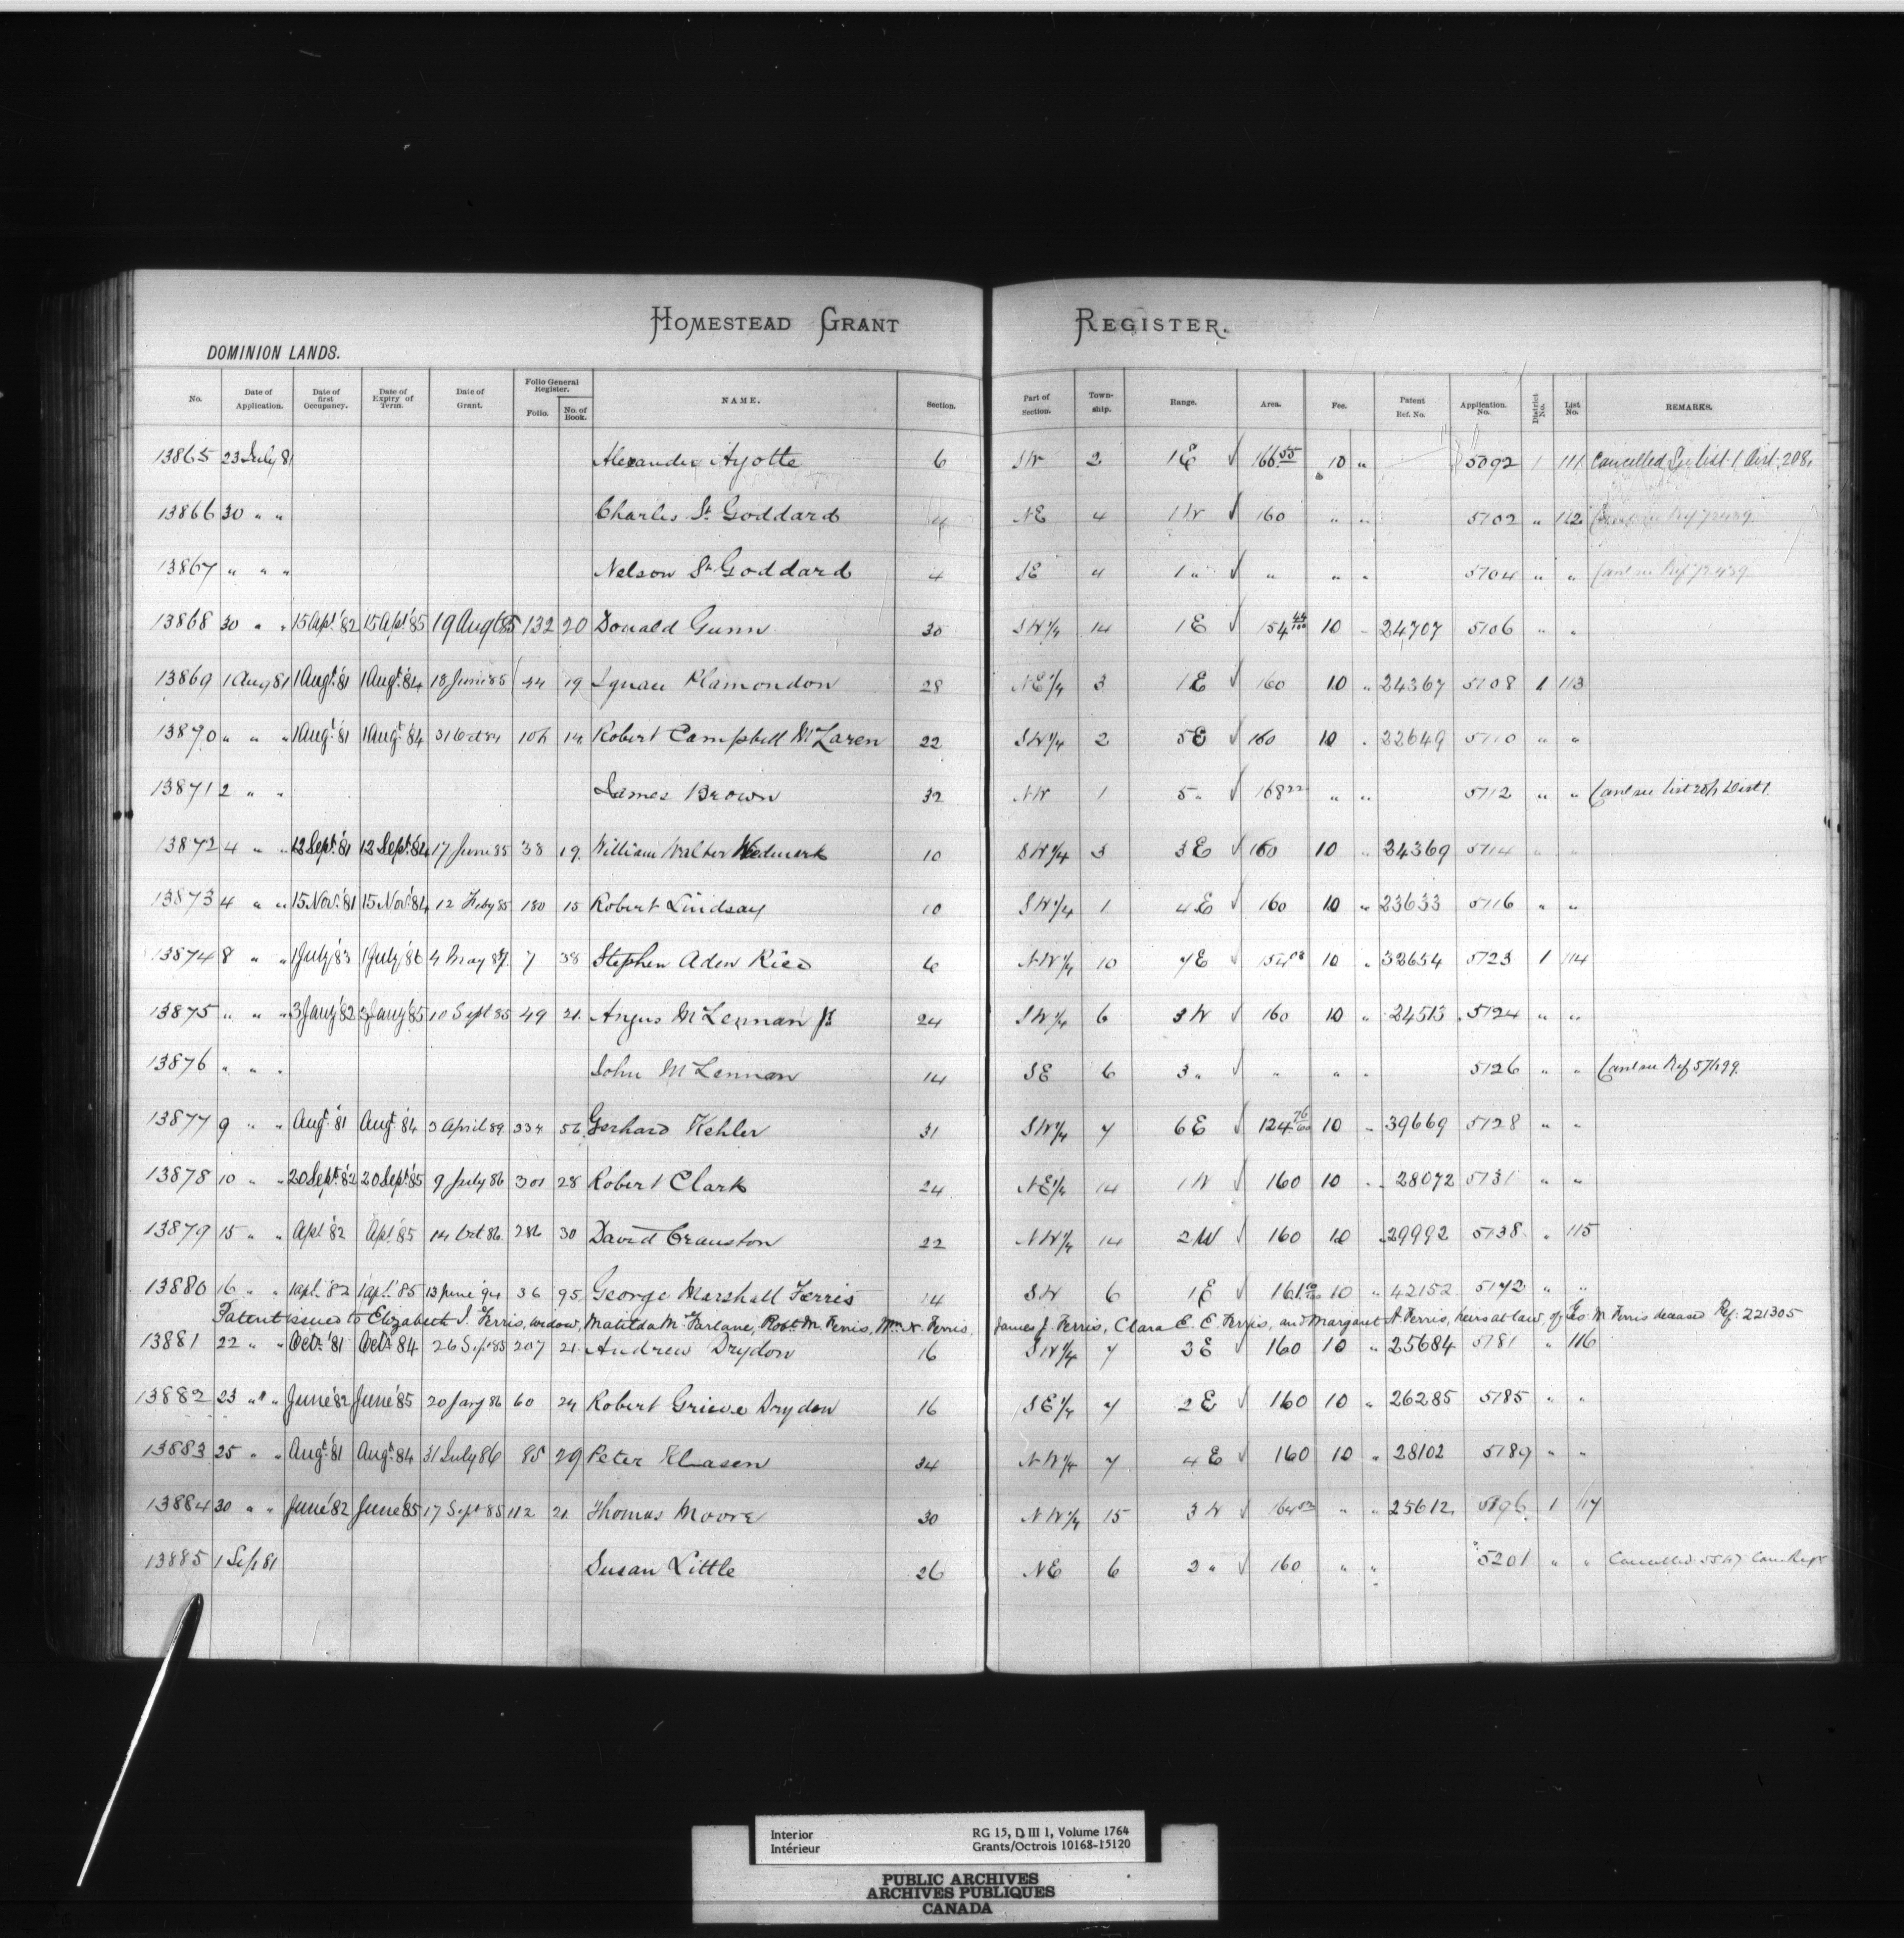 HOMESTEAD GRANT REGISTER.
DOMINION LANDS.
No. Date of Application. Date of first Occupancy. Date of Expiry of Term. Date of Grant. Folio General Register. Folio. No. of Book. NAME. Section. Part of Section. Town-ship. Range. Area. Fee. Patent Ref. No. Application. No. District No. List No. REMARKS.
13865 23 July 81 Alexander Ayotte 6 SW 2 1 E √ 166 55 10 " 5092 1 111 Cancelled See list 1 Dist. 208.
13866 30 " " Charles St. Goddard 4 NE 4 1 W √ 160 " " 5102 " 112
13867 " " " Nelson St Goddard 4 SE 4 1 " √ " " " 5104 " "
13868 30 " " 15 Apl. '82 15 Apl. '85 19 Aug 85 132 20 Donald Gunn 30 SW 1/4 14 1 E √ 154 44/100 10 " 24707 5106 " "
13869 1 Aug 81 1 Augt. '81 1 Augt. '84 18 June 85 44 19 Plamondon 28 NE 1/4 3 1 E √ 160 10 " 24367 5108 1 113
13870 " " " 1 Augt. '81 1 Augt. '84 31 Oct 84 106 14 Robert Campbell McLaren 22 SW 1/4 2 5 E √ 160 10 " 22649 5110 " "
13871 2 " " James Brown 32 NW 1 5 " √ 168 22 " " 5112 " "
13872 4 " " 12 Sept. '81 12 Sept. '84 17 June 85 38 19 William Walter 10 SW 1/4 3 3 E √ 160 10 " 24369 5114 " "
13873 4 " " 15 Nov. '81 15 Nov. '84 12 Feby 85 180 15 Robert Lindsay 10 SW 1/4 1 4 E √ 160 10 " 23633 5116 " "
13874 8 " " 1 July '83 1 July '86 4 May 87 7 38 Stephen Aden Rice 6 NW 1/4 10 7 E √ 154 10 " 32654 5123 1 114
13875 " " " 3 Jany '82 3 Jany '85 10 Sept 85 49 21 Angus McLennan Jr 24 SW 1/4 6 3 W √ 160 10 " 24513 5124 " "
13876 " " " John McLennan 14 SE 6 3 " √ " " " 5126 " "
13877 9 " " Augt. '81 Augt. '84 3 April 89 334 56 Gerhard Kehler 31 SW 1/4 7 6 E √ 124 76/100 10 " 39669 5128 " "
13878 10 " " 20 Sept. '82 20 Sept. '85 9 July 86 301 28 Robert Clark 24 NE 1/4 14 1 W √ 160 10 " 28072 5131 " "
13879 15 " " Apl. '82 Apl. '85 14 Oct 86 286 30 David Cranston 22 NW 1/4 14 2 W √ 160 10 " 29992 5138 " 115
13880 16 " " 1 Apl. '82 1 Apl. '85 13 June '94 36 95 George Marshall Ferris 14 SW 6 1 E √ 161 10 " 42152 5142 " "
Patent issued to Elizabeth J. Ferris, widow, Matilda McFarlane, Robt. M. Ferris, Wm. N. Ferris, James J. Ferris, Clara E. E. Ferris, and Margaret A. Ferris, heirs at law of Geo. M. Ferris deceased Ref. 221305
13881 22 " " Octr. '81 Octr. '84 26 Sept 85 207 21 Andrew Drydon 16 SW 1/4 7 3 E √ 160 10 " 25684 5181 " 116
13882 23 " " June '82 June '85 20 Jany 86 60 24 Robert Grieve Dryden 16 SE 1/4 7 2 E √ 160 10 " 26285 5185 " "
13883 25 " " Augt. '81 Augt. '84 31 July 86 85 29 Peter Klasen 34 NW 1/4 7 4 E √ 160 10 " 28102 5189 " "
13884 30 " " June '82 June '85 17 Sept 85 112 21 Thomas Moore 30 NW 1/4 15 3 W √ 164 52 " " 25612 5196 1 117
13885 1 Sept 81 Susan Little 26 NE 6 2 " √ 160 " " 5201 " " Cancelled
Interior RG 15, D III 1, Volume 1764
Intérieur Grants/Octrois 10168-15120
PUBLIC ARCHIVES
ARCHIVES PUBLIQUES
CANADA